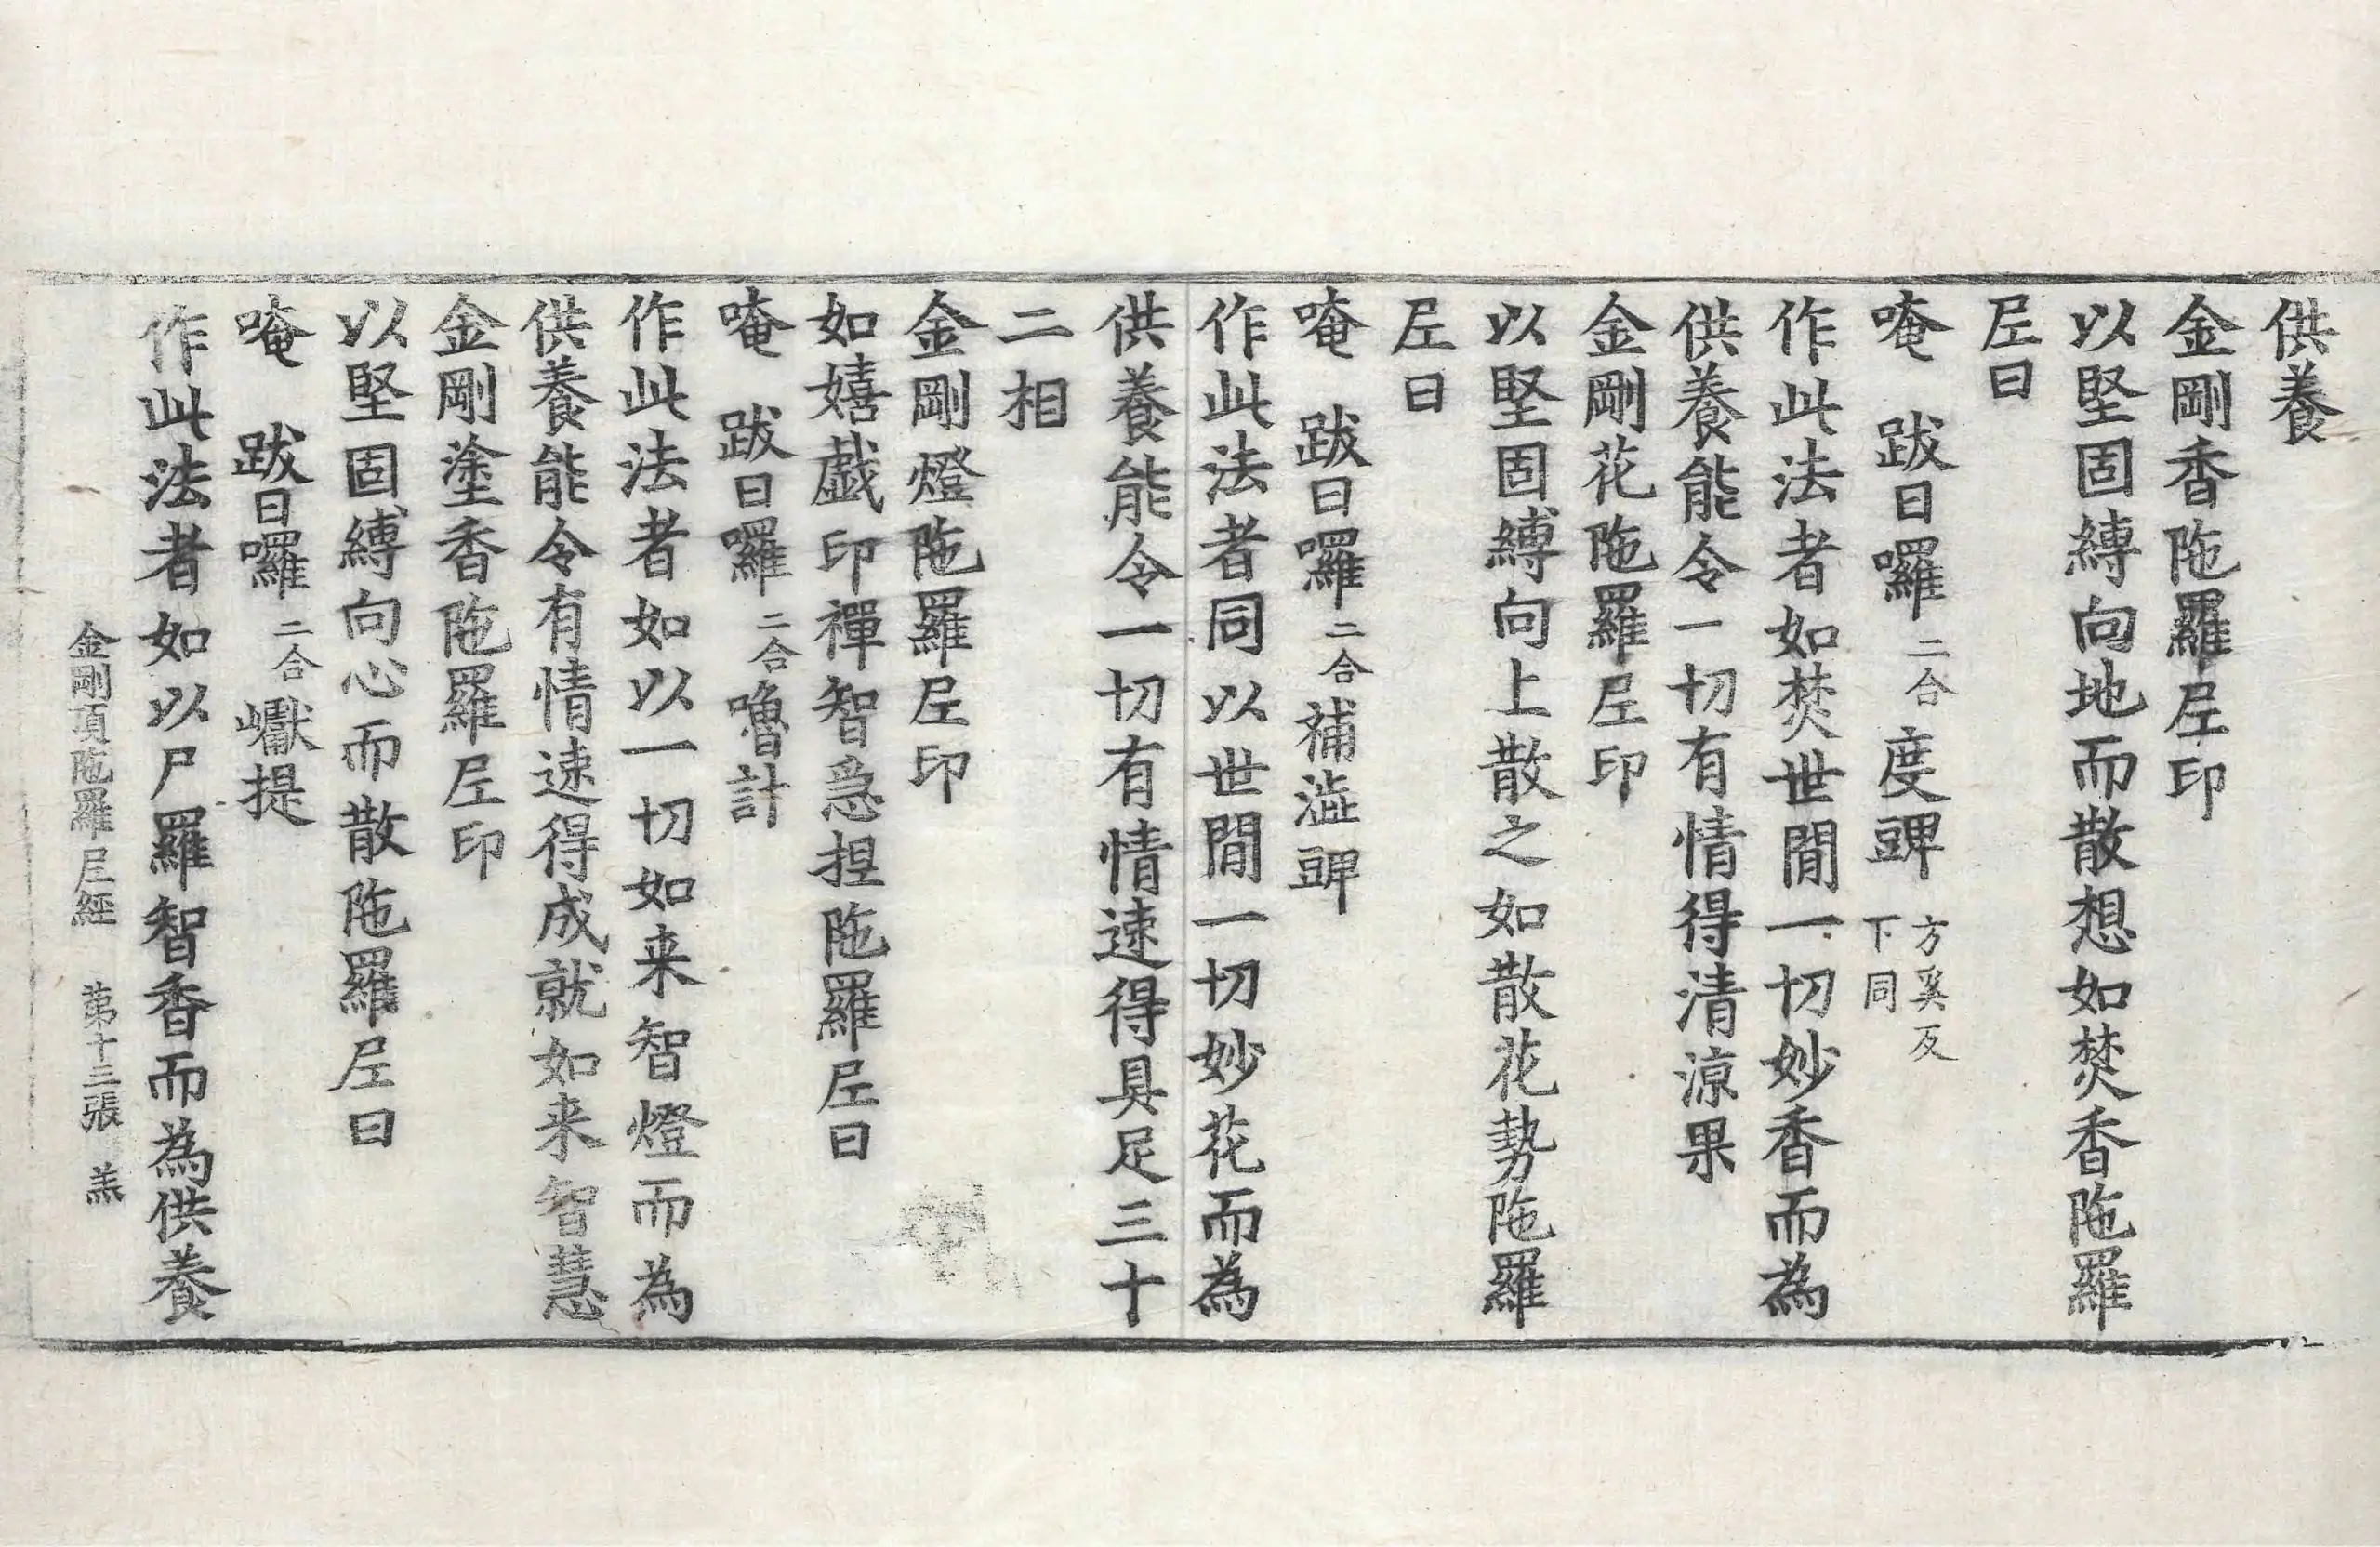 供養
金剛香陁羅𡰱印
以堅固縛向地而散想如焚香陁羅
𡰱曰
唵 跋日囉二合度䫌方奚反下同
作此法者如焚世間一切妙香而為
供養能令一切有情得清涼果
金剛花陁羅𡰱印
以堅固縛向上散之如散花勢陁羅
𡰱曰
唵 跋日囉二合補澁䫌
作此法者同以世間一切妙花而為
供養能令一切有情速得具足三十
二相
金剛燈陁羅𡰱印
如嬉戯印禪智急捏陁羅𡰱曰
唵 跋日囉二合嚕計
作此法者如以一切如来智燈而為
供養能令有情速得成就如来智慧
金剛塗香陁羅𡰱印
以堅固縛向心而散陁羅𡰱曰
唵 跋日囉二合巘提
作此法者如以尸羅智香而為供養
金剛頂陁羅𡰱經 第十三張 羔